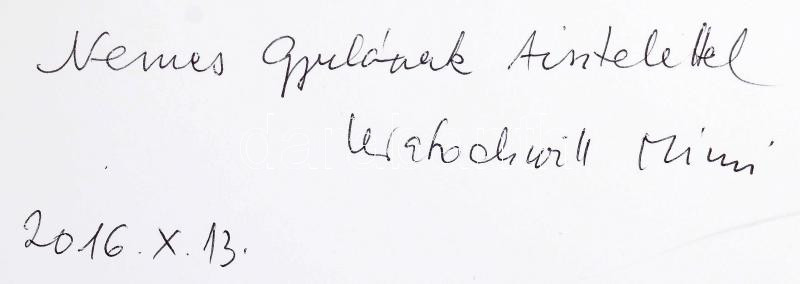 Nemes Gyulának tisztelettel
Kratochwill Mimi
2016. X. 13.